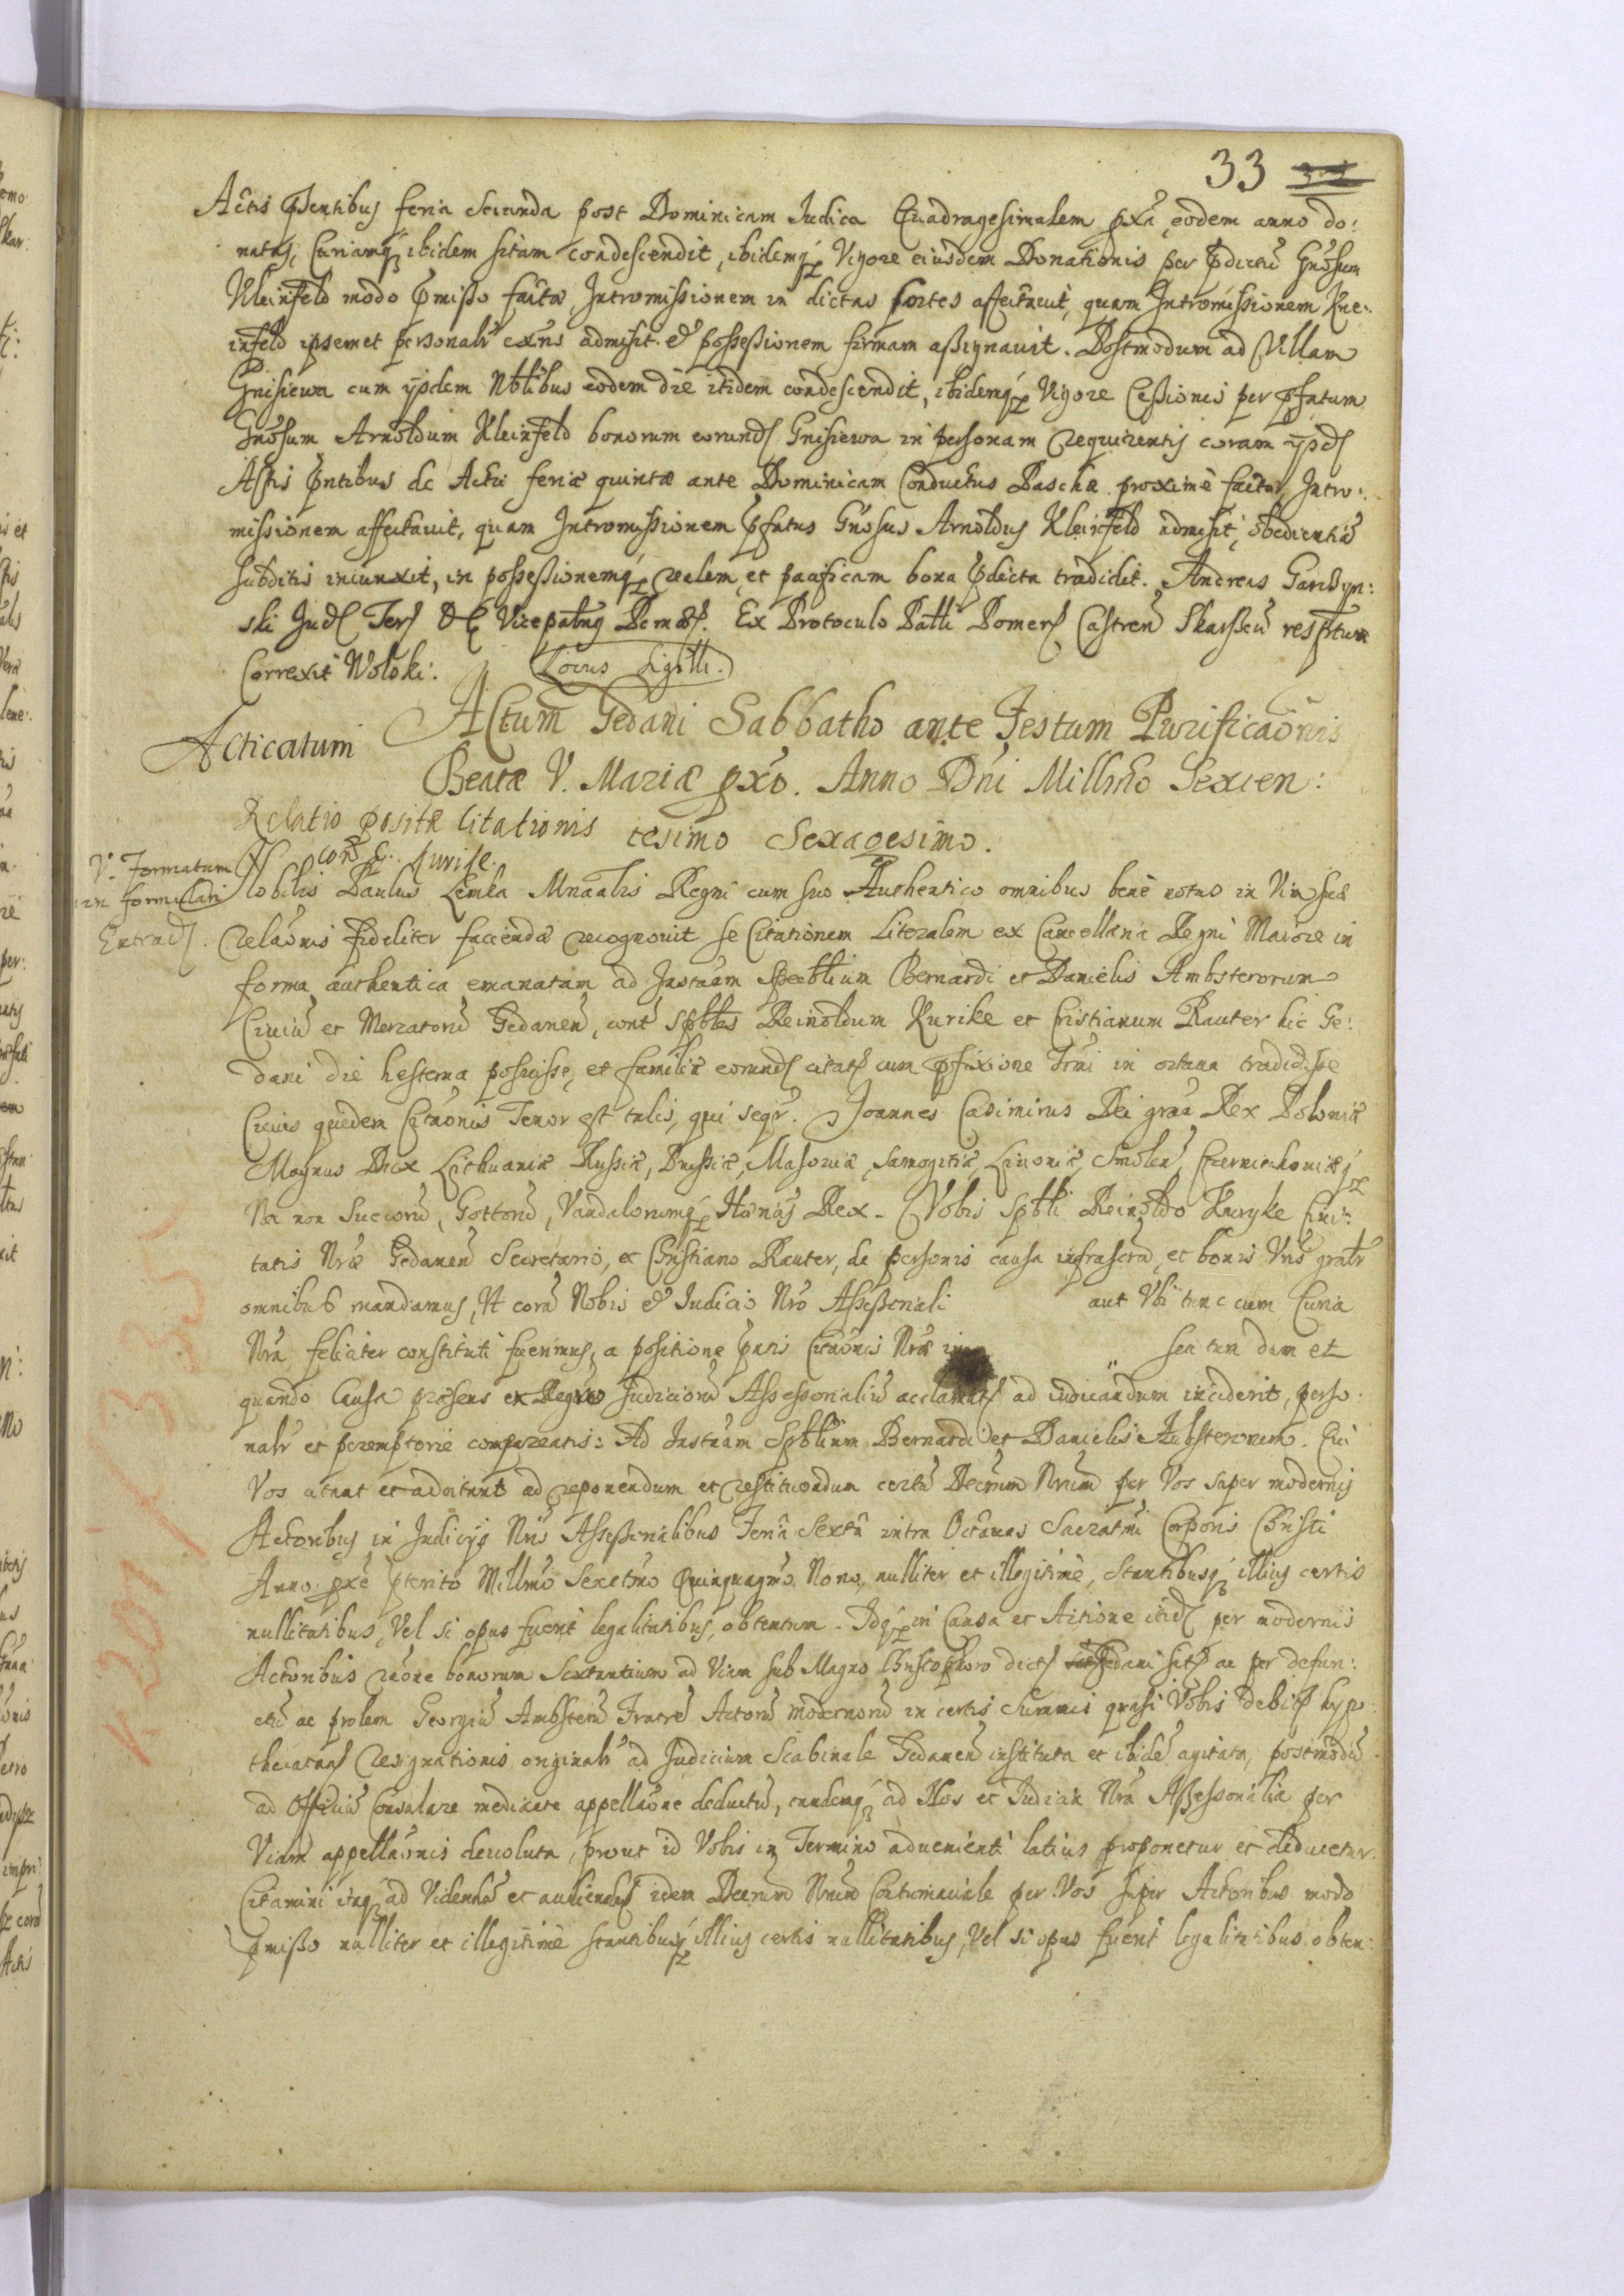 33
Actis p̄sentibus feria secunda post Dominicam Judica Quadragesimalem pxa, eodem anno do:
natas, Curiamq́ ibidem sitam condescendit, ibidemq́ Vigore eiusdem Donationis per p̄dictũ Gnosum
Kleinfeld modo p̄misso factæ, Intromissionem in dictas sortes affectavit, quam Intromissionem Kle:
infeld ipsemet personalr̃ exñs admisit & possessionem firmam assignavit. Postmodum ad Villam
Gnisiewa cum ijsdem Nblibus eodem die itidem condescendit, ibidemq́ Vigore Cessionis per p̄fatum
Gnosum Arnoldum Kleinfeld bonorum eorund Gnisiewa in personam requirentis coram ijsd
Actis p̄ntibus de Actu feriæ quintæ ante Dominicam Conductus Paschæ proximè factæ, Intro:
missionem affectavit, quam Intromissionem p̄fatus Gnosus Arnoldus Kleinfeld admisit, obedientiã
subditis iniunxit, in possessionemq́ realem et pacificam bona p̄dicta tradidit. Andreas Garczyn:
ski Jud Ter Vicepaltnũ Pomer. Ex Protocolo Pallt Pomer Castren Skarssew resptum
Correxit Wolski: Locus Sigilli.
Acticatum
Actum Gedani Sabbatho ante Festum Purificaõnis
Beatæ V. Mariæ pxõ. Anno Dñi Millmo Sexcen:
tesimo Sexagesimo.
Relatio positæ Citationis
con Kurike.
V. Formatum
in formulari
Extrad.
Nobilis Paulus Lemka Mnaalis Regni cum suo Authentico omnibus benè notus in Vim suæ
relaõnis fideliter faciendæ recognovit se Citationem Literalem ex Cancellaria Regni Maiore in
forma authentica emanatam ad Instãam Spectblium Bernardi et Danielis Ambsterorum
Civiũ et Mercatorũ Gedanen, cont Spbles Reinoldum Kurike et Cristianum Rauter hic Ge:
dani die hesterna posuisse, et familiæ eorund citat cum p̄fixione Trmi in octava tradidisse
Cuius quidem Citaõnis Tenor est talis, qui seqr. Joannes Casimirus Dei grãa Rex Poloniæ
Magnus Dux Lithuaniæ Russiæ, Prussiæ, Masoviæ, Samogitiæ, Livoniæ, Smolen, Czerniechoviæq́
Nec non Suecorũ, Gottorũ, Vandalorumq́ Hærius Rex. Vobis Spbli Reinoldo Kuryke Civi:
tatis Nræ Gedanen Secretario, et Christiano Rauter, de personis causa infrascrta, et bonis Vris gratr
omnibus mandamus, Ut corã Nobis & Judicio Nro Assessoriali aut Ubi tunc cum Curia
Nra feliciter constituti fuerimus, a positione p̄ntis Citaõnis Nræ in sea tum dum et
quando Causa præsens ex Regro Judiciorũ Assessorialiũ acclamat ad iudicandum inciderit, perso:
nalr et peremptoriè compareatis: Ad Instãam Spblium Bernardi et Danielis Ambsterorum. Qui
Vos citant et adcitant ad reponendum et restituendum certũ Decretum Nrum per Vos super modernis
Actoribus in Judicijs Nris Assessorialibus Feria Sexta intra Octavas Sacratmi Corporis Christi
Anno pxè p̄terito Millmo Sexctmo Quinquagmo Nono, nulliter et illegitimè, Stantibusq́ illius certis
nullitatibus, Vel si opus fuerit legalitatibus, obtentum. Idq́ in Causa et Actione itid per modernos
Actoribus raõne bonorum Sextantium ad Viam sub Magno Christophoro dict Gedani sit ac per defun:
ctũ ac prolem Georgiũ Ambsterũ Fratrẽ Actorũ modernorũ in certis summis quasi Vobis debit hypo:
thecatas resignationis originalr ad Judicium Scabinale Gedanen instituta et ibidẽ agitata, postmodũ
ad Officiũ Consulare mediante appellaõne deductũ, eandemq́ ad Nos et Judicia Nra Assessorialia per
Viam appellaõnis devoluta, prout id Vobis in Termino advenienti latius proponetur et deducetur.
Citamini itaq́ ad Videndũ et audiendũ idem Decretum Nrum Contumaciale per Vos super Actoribus modo
p̄misso nulliter et illegitimè stantibusq́ illius certis nullitatibus, Vel si opus fuerit legalitatibus obten: